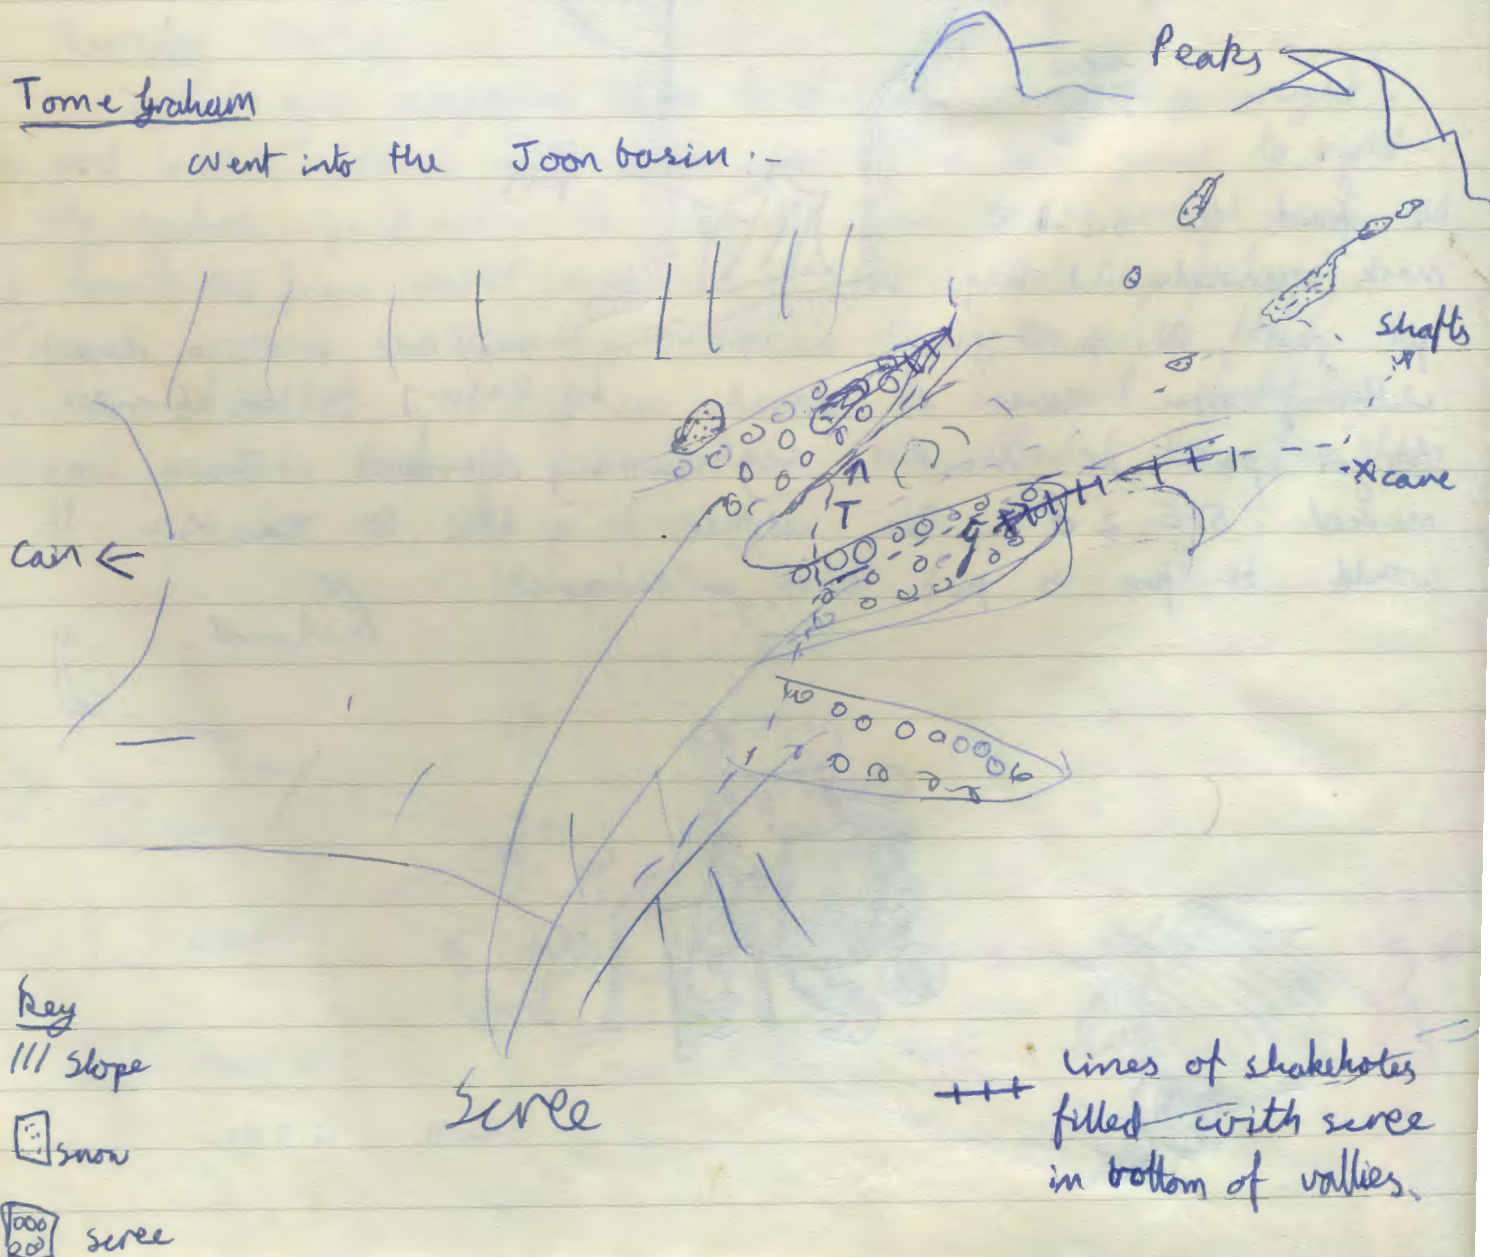 Tom & Graham
went into the Joon basin :-
Peaks
shafts
cave
T
Cain ←
Key
/// Slope
snow
scree
Scree
lines of shakeholes
filled with scree
in bottom of vallies.